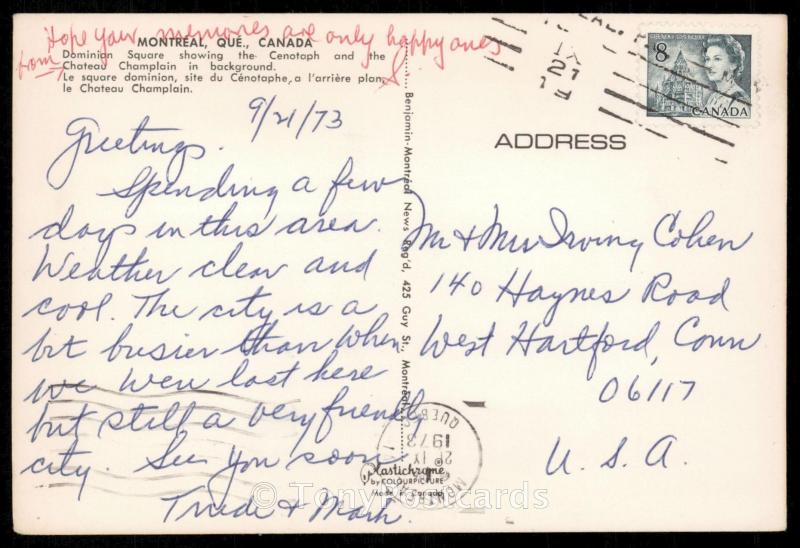 Hope your memories are only happy ones
from S.
MONTRÉAL, QUÉ., CANADA
Dominion Square showing the Cenotaph and the
Chateau Champlain in background.
Le square dominion, site du Cénotaphe, a l'arrière plan,
le Chateau Champlain.
9/21/73
Greetings.
Spending a few
days in this area.
Weather clear and
cool. The city is a
bit busier than when
we were last here
but still a very friendly
city. See you soon
Trude & Mark.
Benjamin-Montréal News Reg'd, 425 Guy St., Montréal
Plastichrome®
by COLOURPICTURE
Made in Canada
QUEBEC
1973
21 IX
MONTREAL
IX
21
8
CANADA
ADDRESS
Mr & Mrs Irving Cohen
140 Haynes Road
West Hartford, Conn
06117
U.S.A.
© TonyPostcards